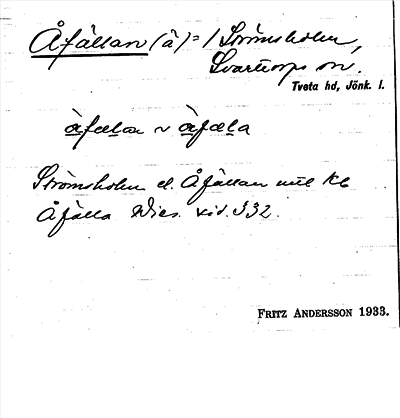 Åfällan (å) = / Strömsholm,
Svarttorps sn.
Tveta hd, Jönk. l.
åfælan ~ åfæla
Strömsholm el. Åfällan
Åfälla Wies. sid. 332.
FRITZ ANDERSSON 1933.